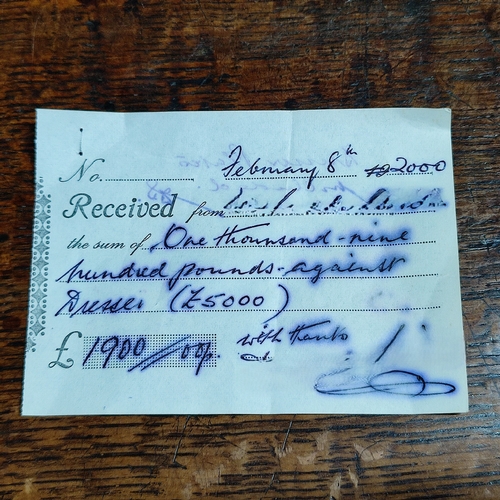 No. February 8th 19 2000
Received from
the sum of One thounsend - nine
hundred pounds - against
Dresser (£5000)
£ 1900 // 00p. with thanks